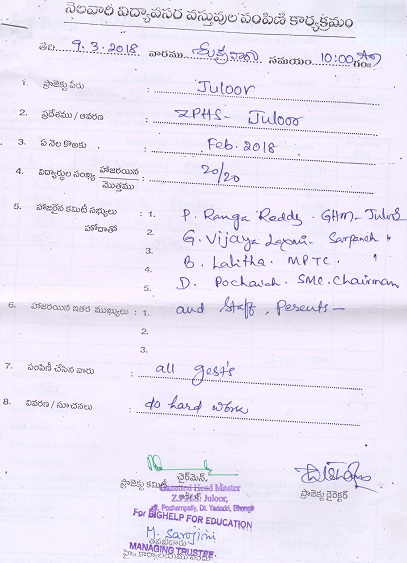 నెలవారి విద్యావసర వస్తువుల పంపిణి కార్యక్రమం
తేది 9.3.2018 వారము శుక్రవారం సమయం 10:00 గం॥
1. ప్రాజెక్టు పేరు : Juloor
2. ప్రదేశము / ఆవరణ : ZPHS- Juloor
3. ఏ నెల కొఱకు : Feb. 2018
4. విద్యార్థుల సంఖ్య హాజరయిన/మొత్తము : 20/20
5. హాజరైన కమిటీ సభ్యులు : 1. P. Ranga Reddy. GHM- Juloor
హోదాతో 2. G. Vijaya Laxmi- Sarpanch "
3. B. Lalitha. MPTC. "
4.
5. D. Pochaiah. SMC. Chairman
6. హాజరయిన ఇతర ముఖ్యులు : 1. and Staff, Perents -
2.
3.
7. పంపిణీ చేసిన వారు : all gest's
8. వివరణ / సూచనలు : do hard work
చైర్‌మెన్,
ప్రాజెక్టు కమిటీ
ప్రాజెక్టు డైరెక్టర్
Gazetted Head Master
Z.P.H.S. Juloor,
Pochampally, Dt. Yadadri, Bhongir
For BIGHELP FOR EDUCATION
M. Sarojini
MANAGING TRUSTEE